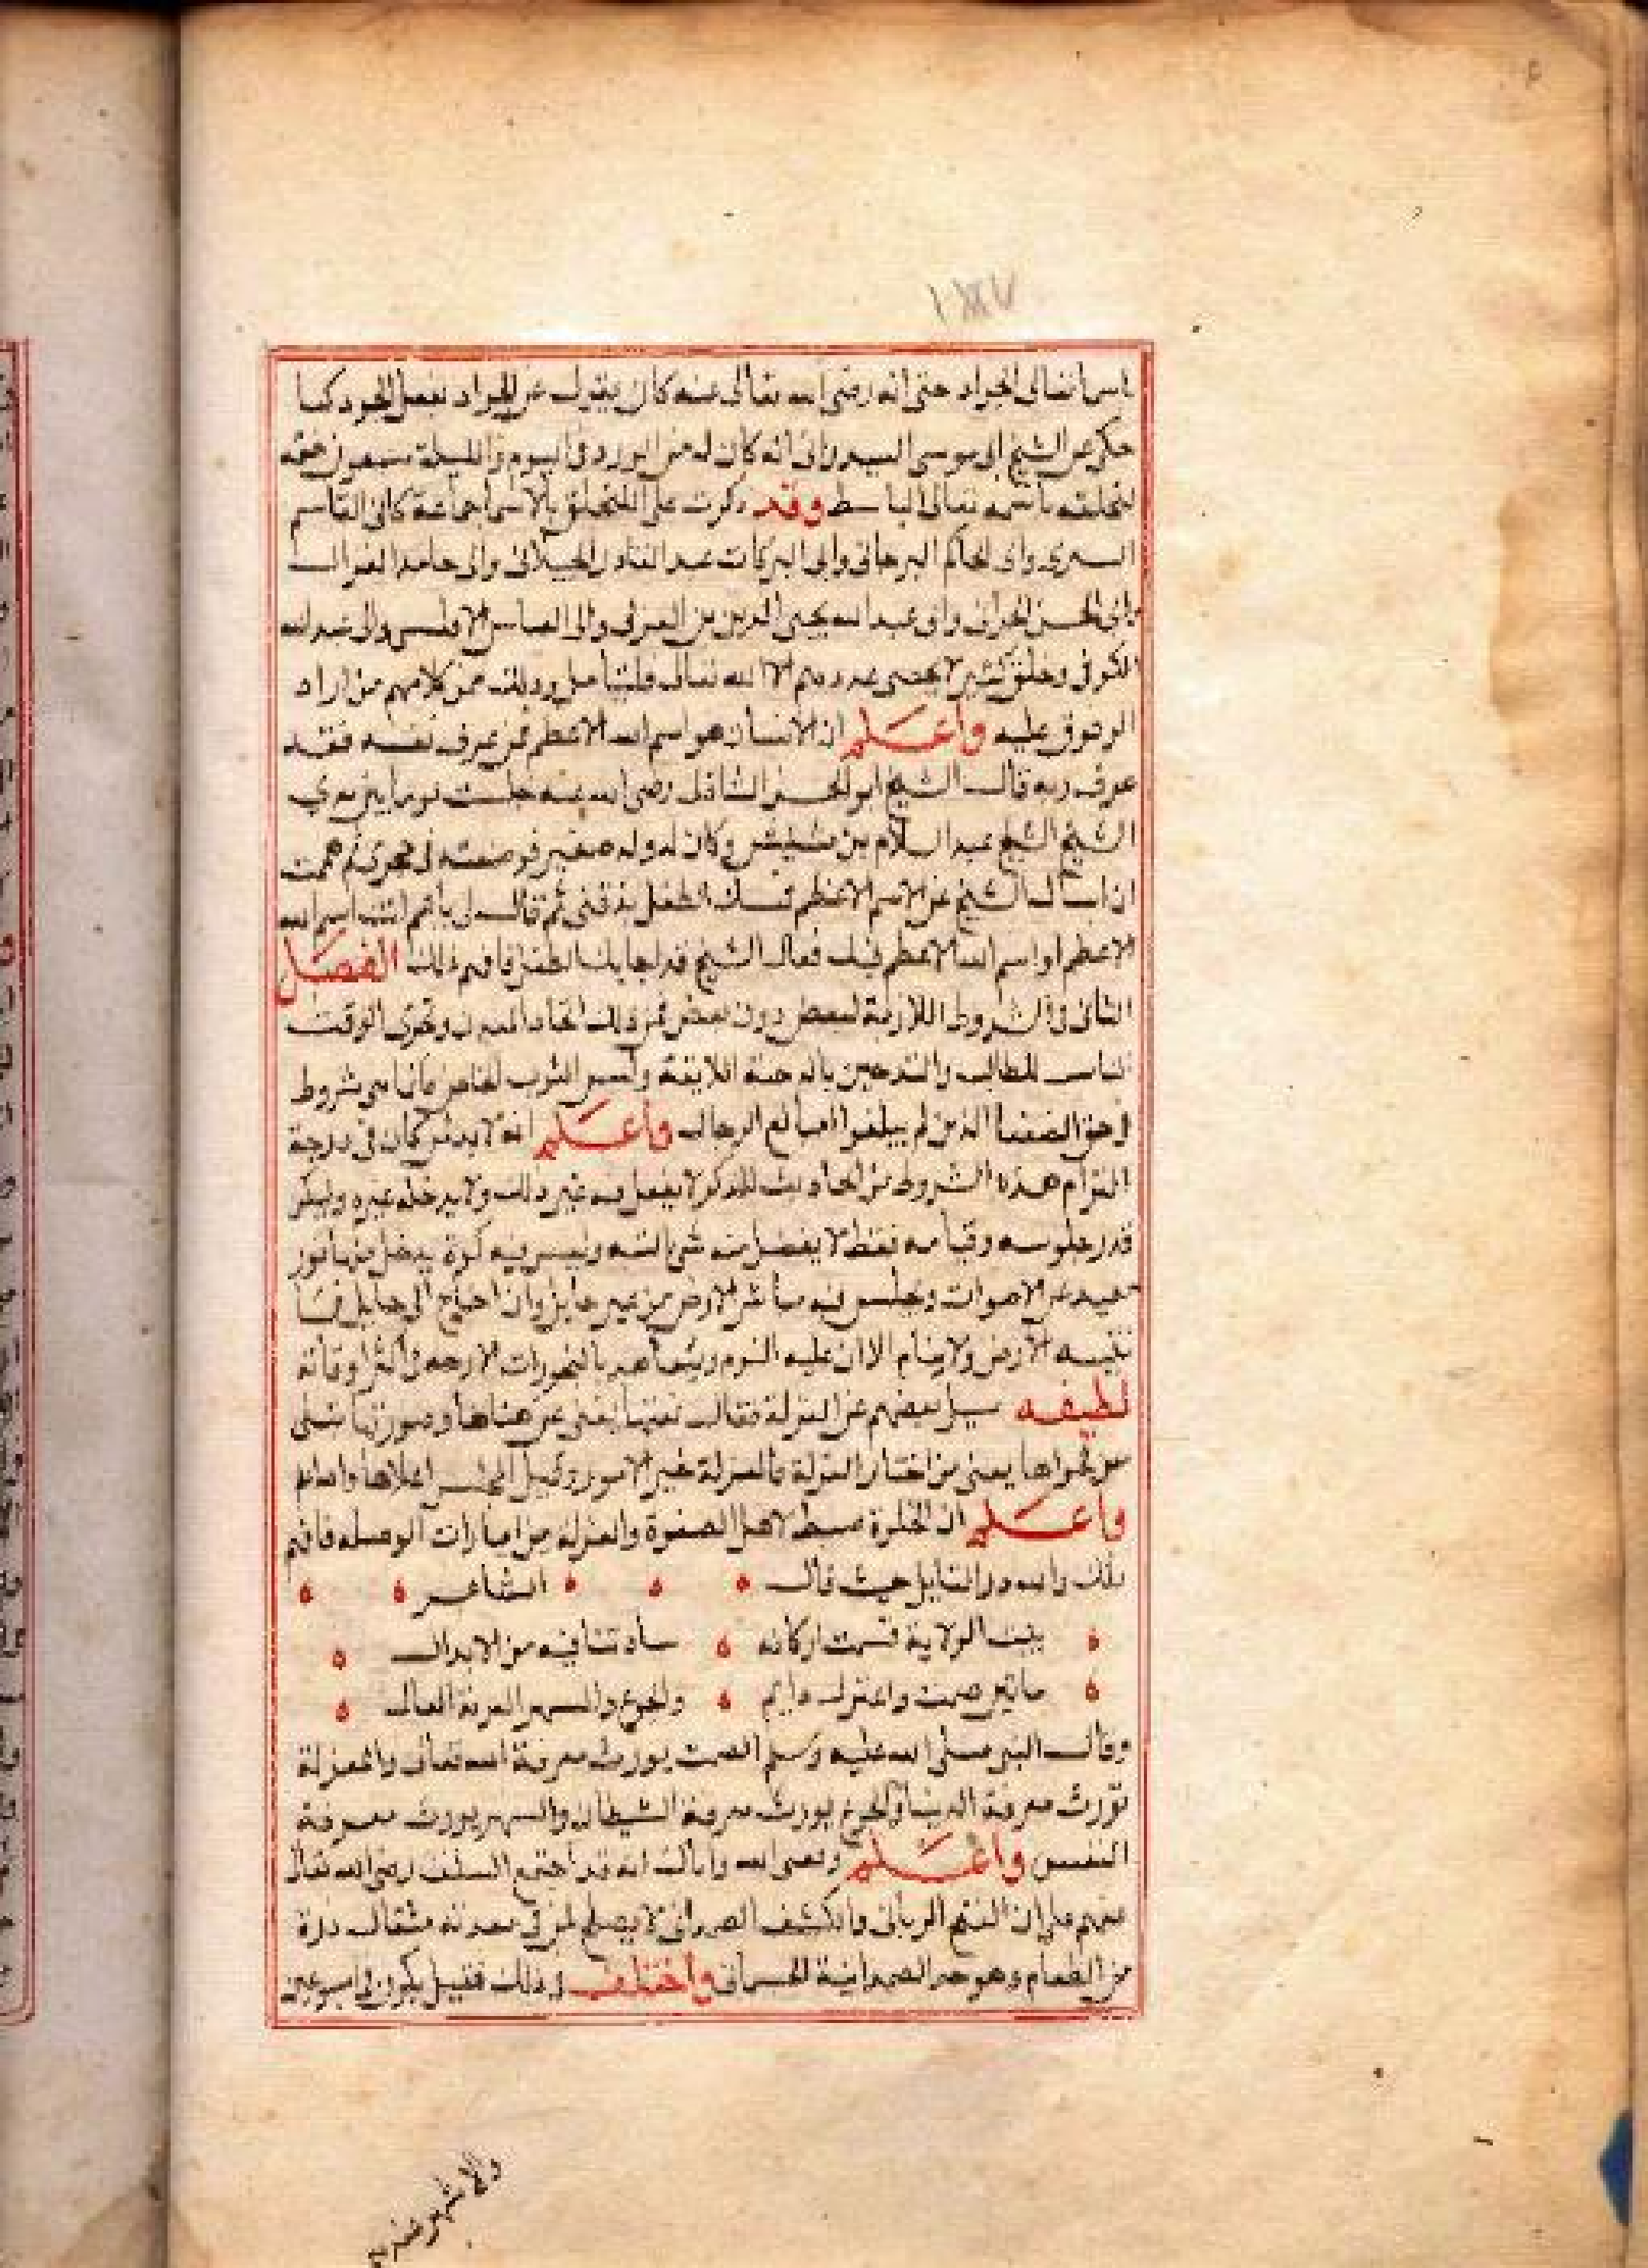 باسمه تعالى الجواد حتى انه رضي الله تعالى عنه كان يقول عن الجواد نفعل الجود كما
حكى عن الشيخ ابي موسى السدراني انه كان له من الورد في اليوم والليلة سبعون ختمة
لتخلقه باسمه تعالى الباسط وقد ذكرت على التخلق بالاسما جماعة كابي القاسم
وابي الحاكم البرجاني وابي البركات عبد القادر الجيلاني وابي حامد الغزالي
وابي الحسن الحراني وابي عبد الله يحيى الدين بن العربي وابي العباس الاقليسي وابي عبد الله
الكوفي وخلق كثير لا يحصى عددهم الا الله تعالى فليتامل وذلك من كلامهم من اراد
الوقوف عليه واعلم ان الانسان هو اسم الله الاعظم فمن عرف نفسه فقد
عرف ربه قال الشيخ ابو الحسن الشاذلي رضي الله عنه جلست يوما بين يدي
الشيخ الشيخ عبد السلام بن مشيش وكان له ولد صغير فوضعته في حجري ثم هممت
ان اسأل الشيخ عن الاسم الاعظم فمسك الطفل بذقني ثم قال لي يا عم انت اسم الله
الاعظم او اسم الله الاعظم فيك فقال الشيخ قد اجابك الطفل فافهم ذلك الفصل
الثاني في الشروط اللازمة لبعض دون بعض فمن ذلك اتخاذ المعدن وتحرى الوقت
المناسب للطالب والتدخين بالدخنة اللايقة ولبس الثوب الخاص فانما هي شروط
في حق الضعفا الذين لم يبلغوا مبالغ الرجال واعلم انه لا بد لمن كان في درجة
التزام هذه الشروط من اتخاذ بيت للذكر لا يفعل فيه غير ذلك ولا يدخله غيره وليكن
قدر جلوسه وقيامه فقط لا يفضل منه شي البته وليس فيه كوة يدخل منها نور
بعيد عن الاصوات ويجلس فيه مباشر الارض من غير حايل وان احتاج الى حايل فما
تنبته الارض ولا ينام الا ان غلبه النوم ويتعاهد بالبخورات الارجة في اكثر اوقاته
لطيفه سيل بعضهم عن العزلة فقال نعتها يغني عن هناها وصورتها تنبى
عن فحواها يعني من اختار العزلة فالعزلة خير الامور وقيل المجلس اعلاها والله اعلم
واعلم ان الخلوة صفة لاهل الصفوة والعزلة من امارات الوصلة فافهم
ذلك ولله در القايل حيث قال الشاعر
بيت الولاية قسمت اركانه سادتنا فيه من الابدال
ما بين صمت واعتزال دايم والجوع والسهر النزيه العال
وقال النبي صلى الله عليه وسلم الصمت يورث معرفة الله تعالى والعزلة
تورث معرفة الدنيا والجوع يورث معرفة الشيطان والسهر يورث معرفة
النفس واعلم وفقني الله واياك انه قد اجمع السلف رضي الله تعالى
عنهم على ان الفتح الرباني والكشف الصمداني لا يصلح لمن في معدته مثقال ذرة
من الطعام وهو حد الصمدانية الجسماني واختلف في ذلك فقيل يكون في اسبوعين